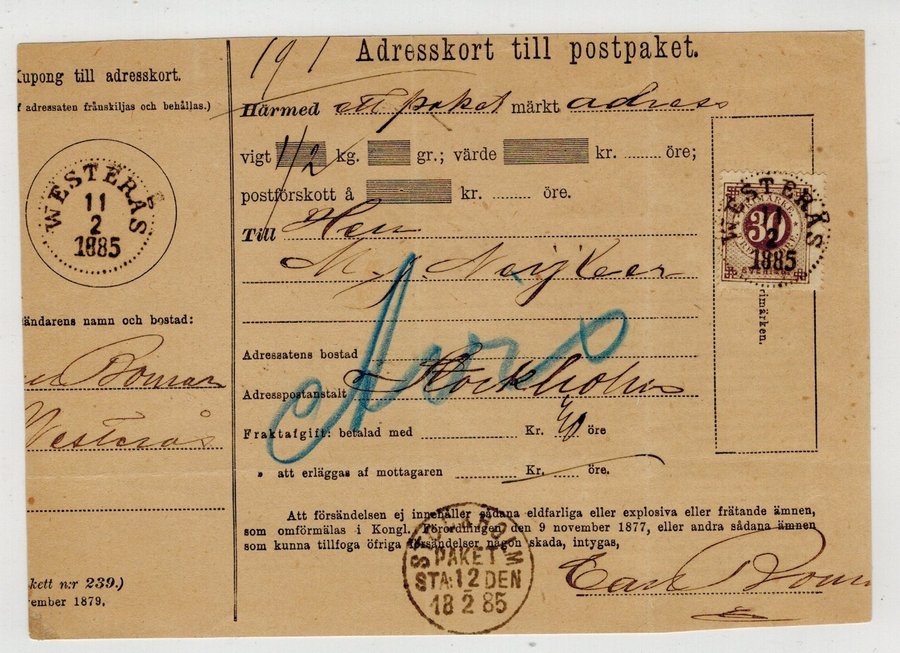 Kupong till adresskort.
adressaten frånskiljas och behållas.)
WESTERÅS
11
2
1885
ändarens namn och bostad:
Boman
Westerås
kett n:r 239.)
vember 1879.
191
Adresskort till postpaket.
Härmed ett paket märkt adress
vigt 1/2 kg. gr.; värde kr. öre;
postförskott å kr. öre.
Till Herr
Adressatens bostad
Adresspostanstalt Stockholm
Fraktafgift: betalad med Kr. öre
» att erläggas af mottagaren Kr. öre.
Att försändelsen ej innehåller sådana eldfarliga eller explosiva eller frätande ämnen,
som omförmälas i Kongl. Förordningen den 9 november 1877, eller andra sådana ämnen
som kunna tillfoga öfriga försändelser någon skada, intygas,
Carl Boman
STOCKHOLM
PAKET
STA: 12 DEN
18 2 85
WESTERÅS
11
2
1885
30
SVERIGE
rimärken.